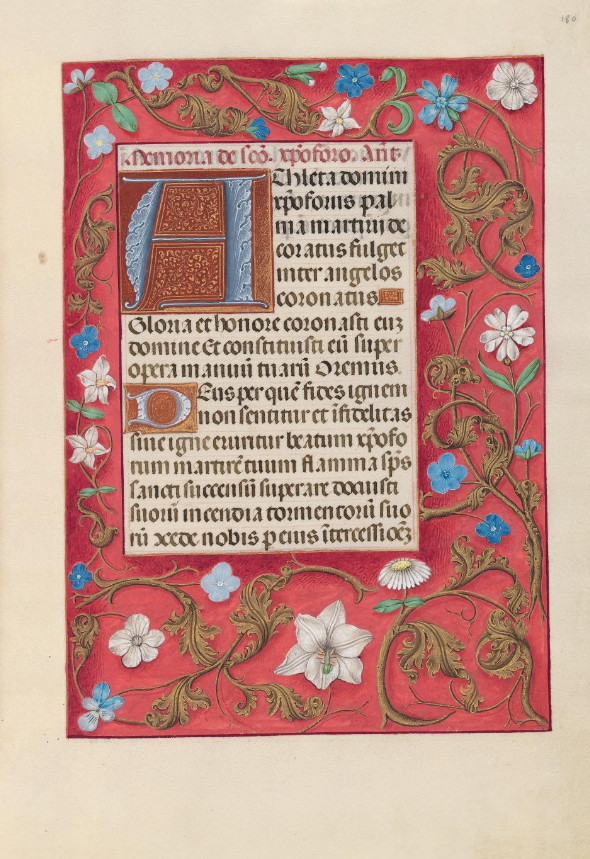 180
Memoria de sco. xpoforo. Ant
Athleta domini
xpoforus pal
ma martirij de
coratus fulget
inter angelos
coronatus
Gloria et honore coronasti euz
domine Et constituisti eū super
opera manuū tuarū Oremus.
Deus per quē fides ignem
non sentitur et īfidelitas
sine igne exuritur beatum xpofo
rum martirē tuum flamma sps
sancti succensū superare docuisti
suorū incendia tormentorū suo
rū xcede nobis